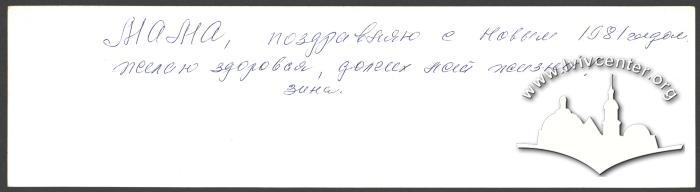 МАМА, поздравляю с Новым 1981 годом
желаю здоровья, долгих лет жизни.
Зина.
www.lvivcenter.org